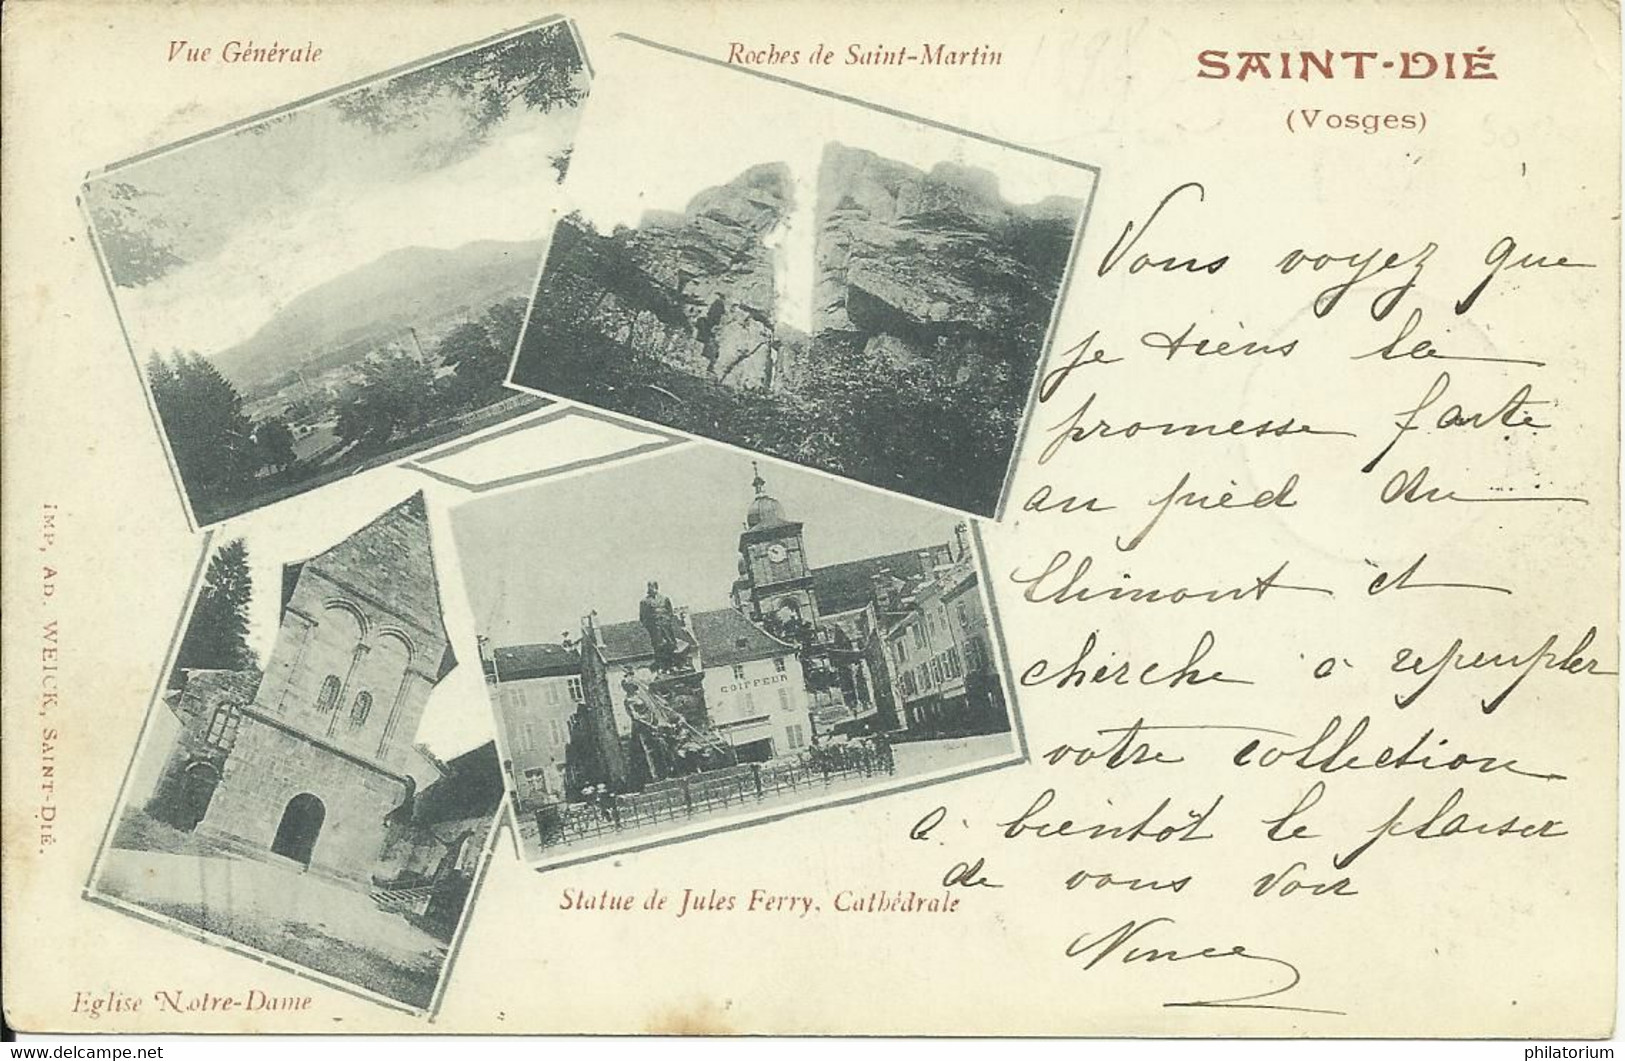 Vue Générale
Roches de Saint-Martin
SAINT-DIÉ
(Vosges)
Vous voyez que
je tiens la
promesse faite
au pied du
Climont et
cherche à repeupler
votre collection
à bientôt le plaisir
de vous voir
COIFFEUR
Statue de Jules Ferry, Cathédrale
Eglise Notre-Dame
IMP, AD. WEICK, SAINT-DIÉ.
https://www.delcampe.net
philatorium